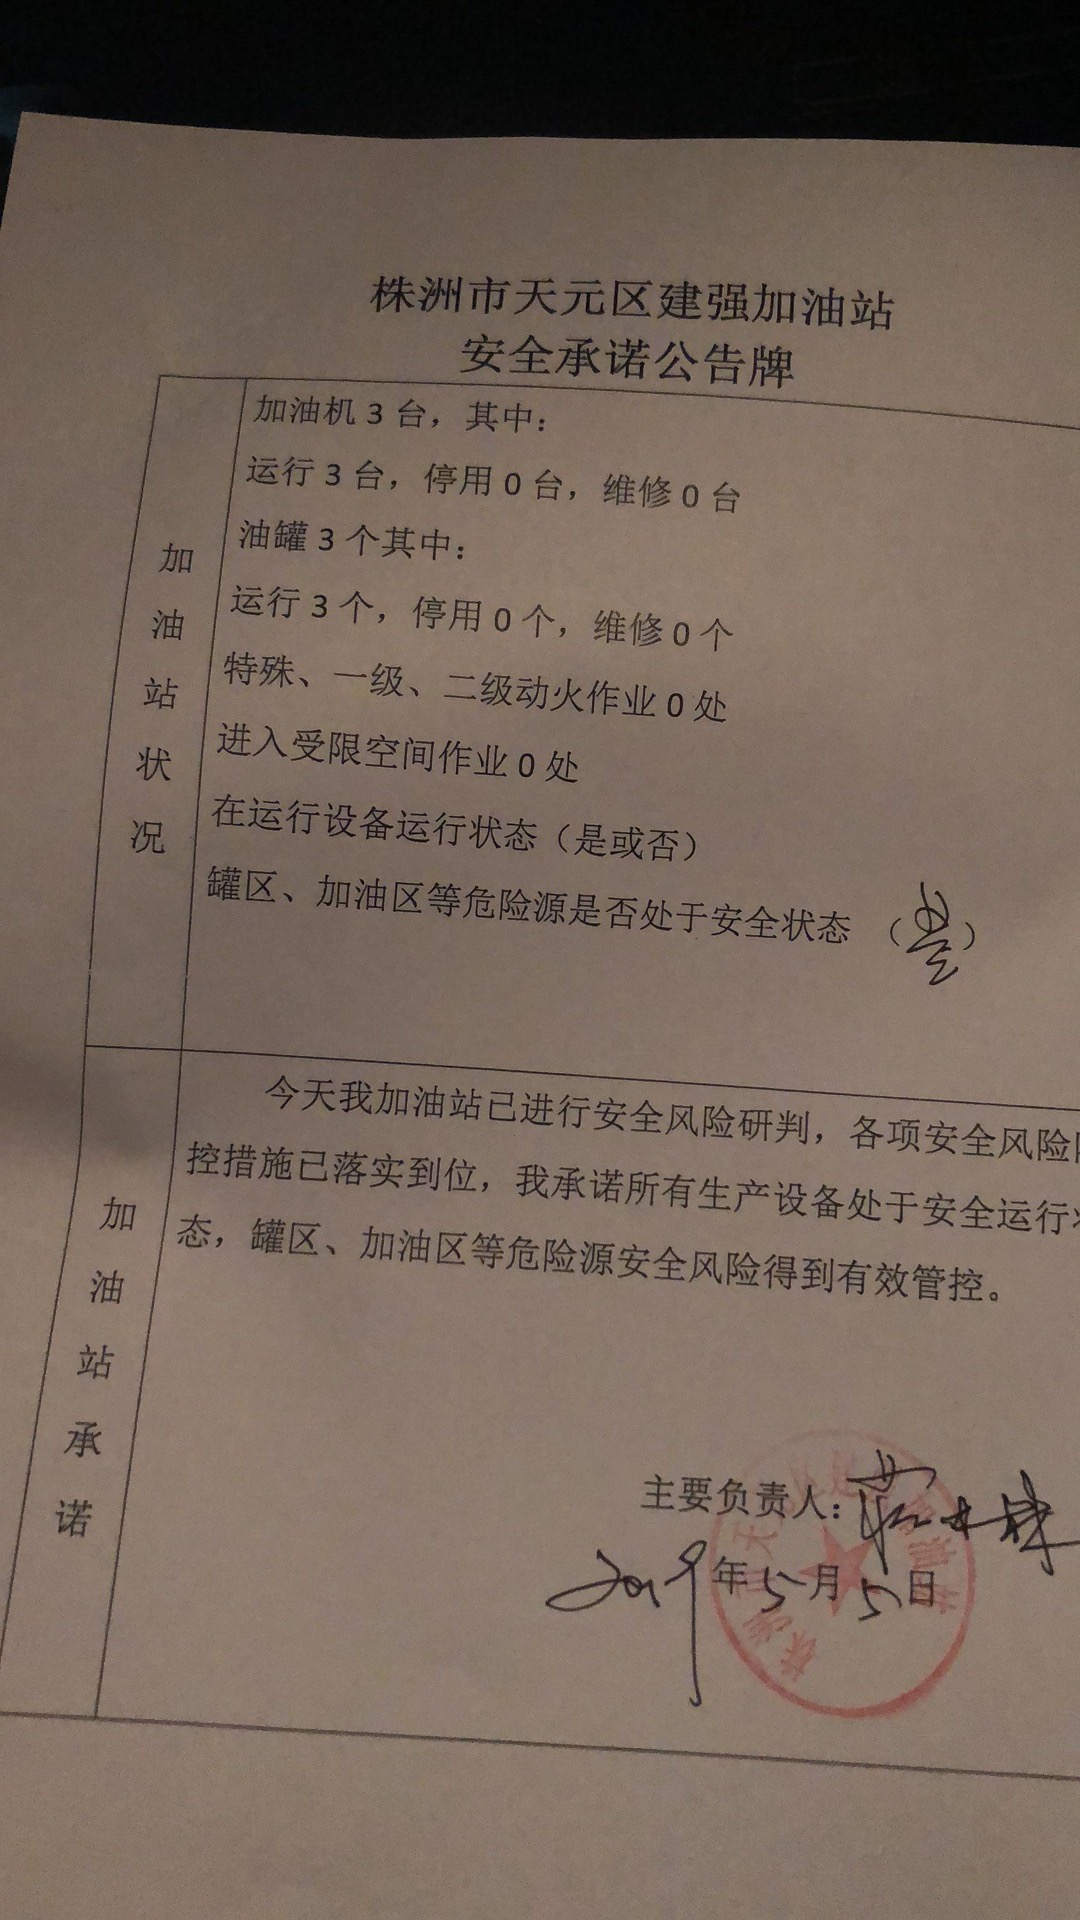 株洲市天元区建强加油站
安全承诺公告牌
加油站状况
加油机3台，其中：
运行3台，停用0台，维修0台
油罐3个其中：
运行3个，停用0个，维修0个
特殊、一级、二级动火作业0处
进入受限空间作业0处
在运行设备运行状态（是或否）
罐区、加油区等危险源是否处于安全状态 （是）
加油站承诺
今天我加油站已进行安全风险研判，各项安全风险
控措施已落实到位，我承诺所有生产设备处于安全运行
态，罐区、加油区等危险源安全风险得到有效管控。
主要负责人：
2019年5月5日